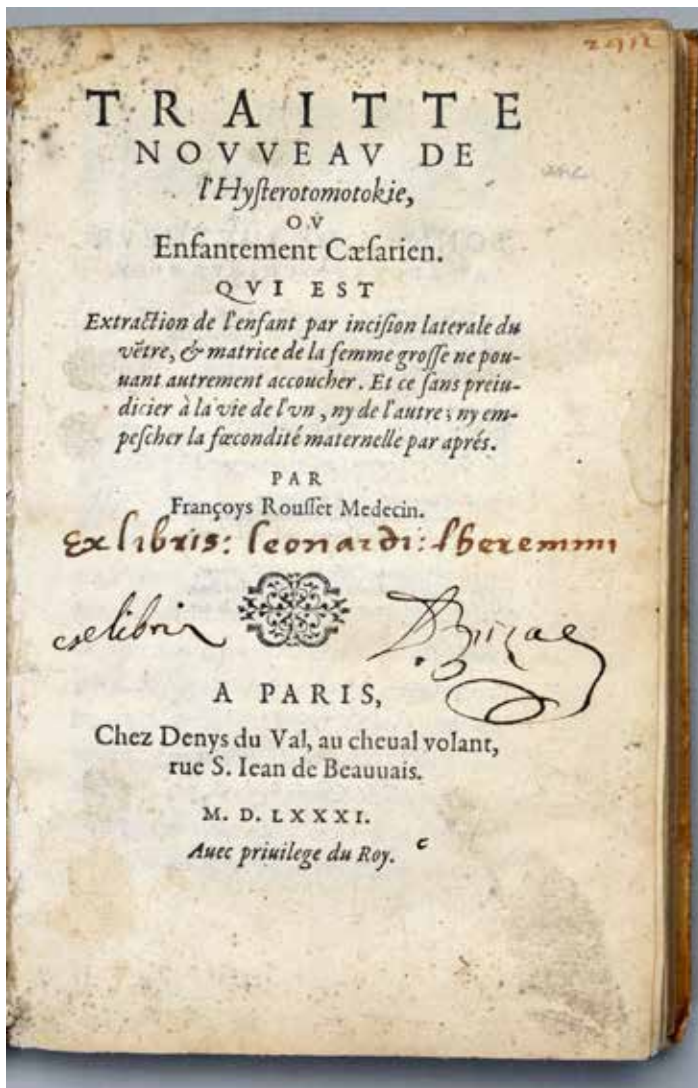 TRAITTE
NOVVEAV DE
l'Hyſterotomotokie,
OV
Enfantement Cæſarien.
QVI EST
Extraction de l'enfant par inciſion laterale du
vẽtre, & matrice de la femme groſſe ne pou-
uant autrement accoucher. Et ce ſans preiu-
dicier à la vie de l'vn, ny de l'autre; ny em-
peſcher la fœcondité maternelle par aprés.
PAR
Françoys Rouſſet Medecin.
Ex libris: leonardi:
A PARIS,
Chez Denys du Val, au cheual volant,
rue S. Iean de Beauuais.
M. D. LXXXI.
Auec priuilege du Roy.